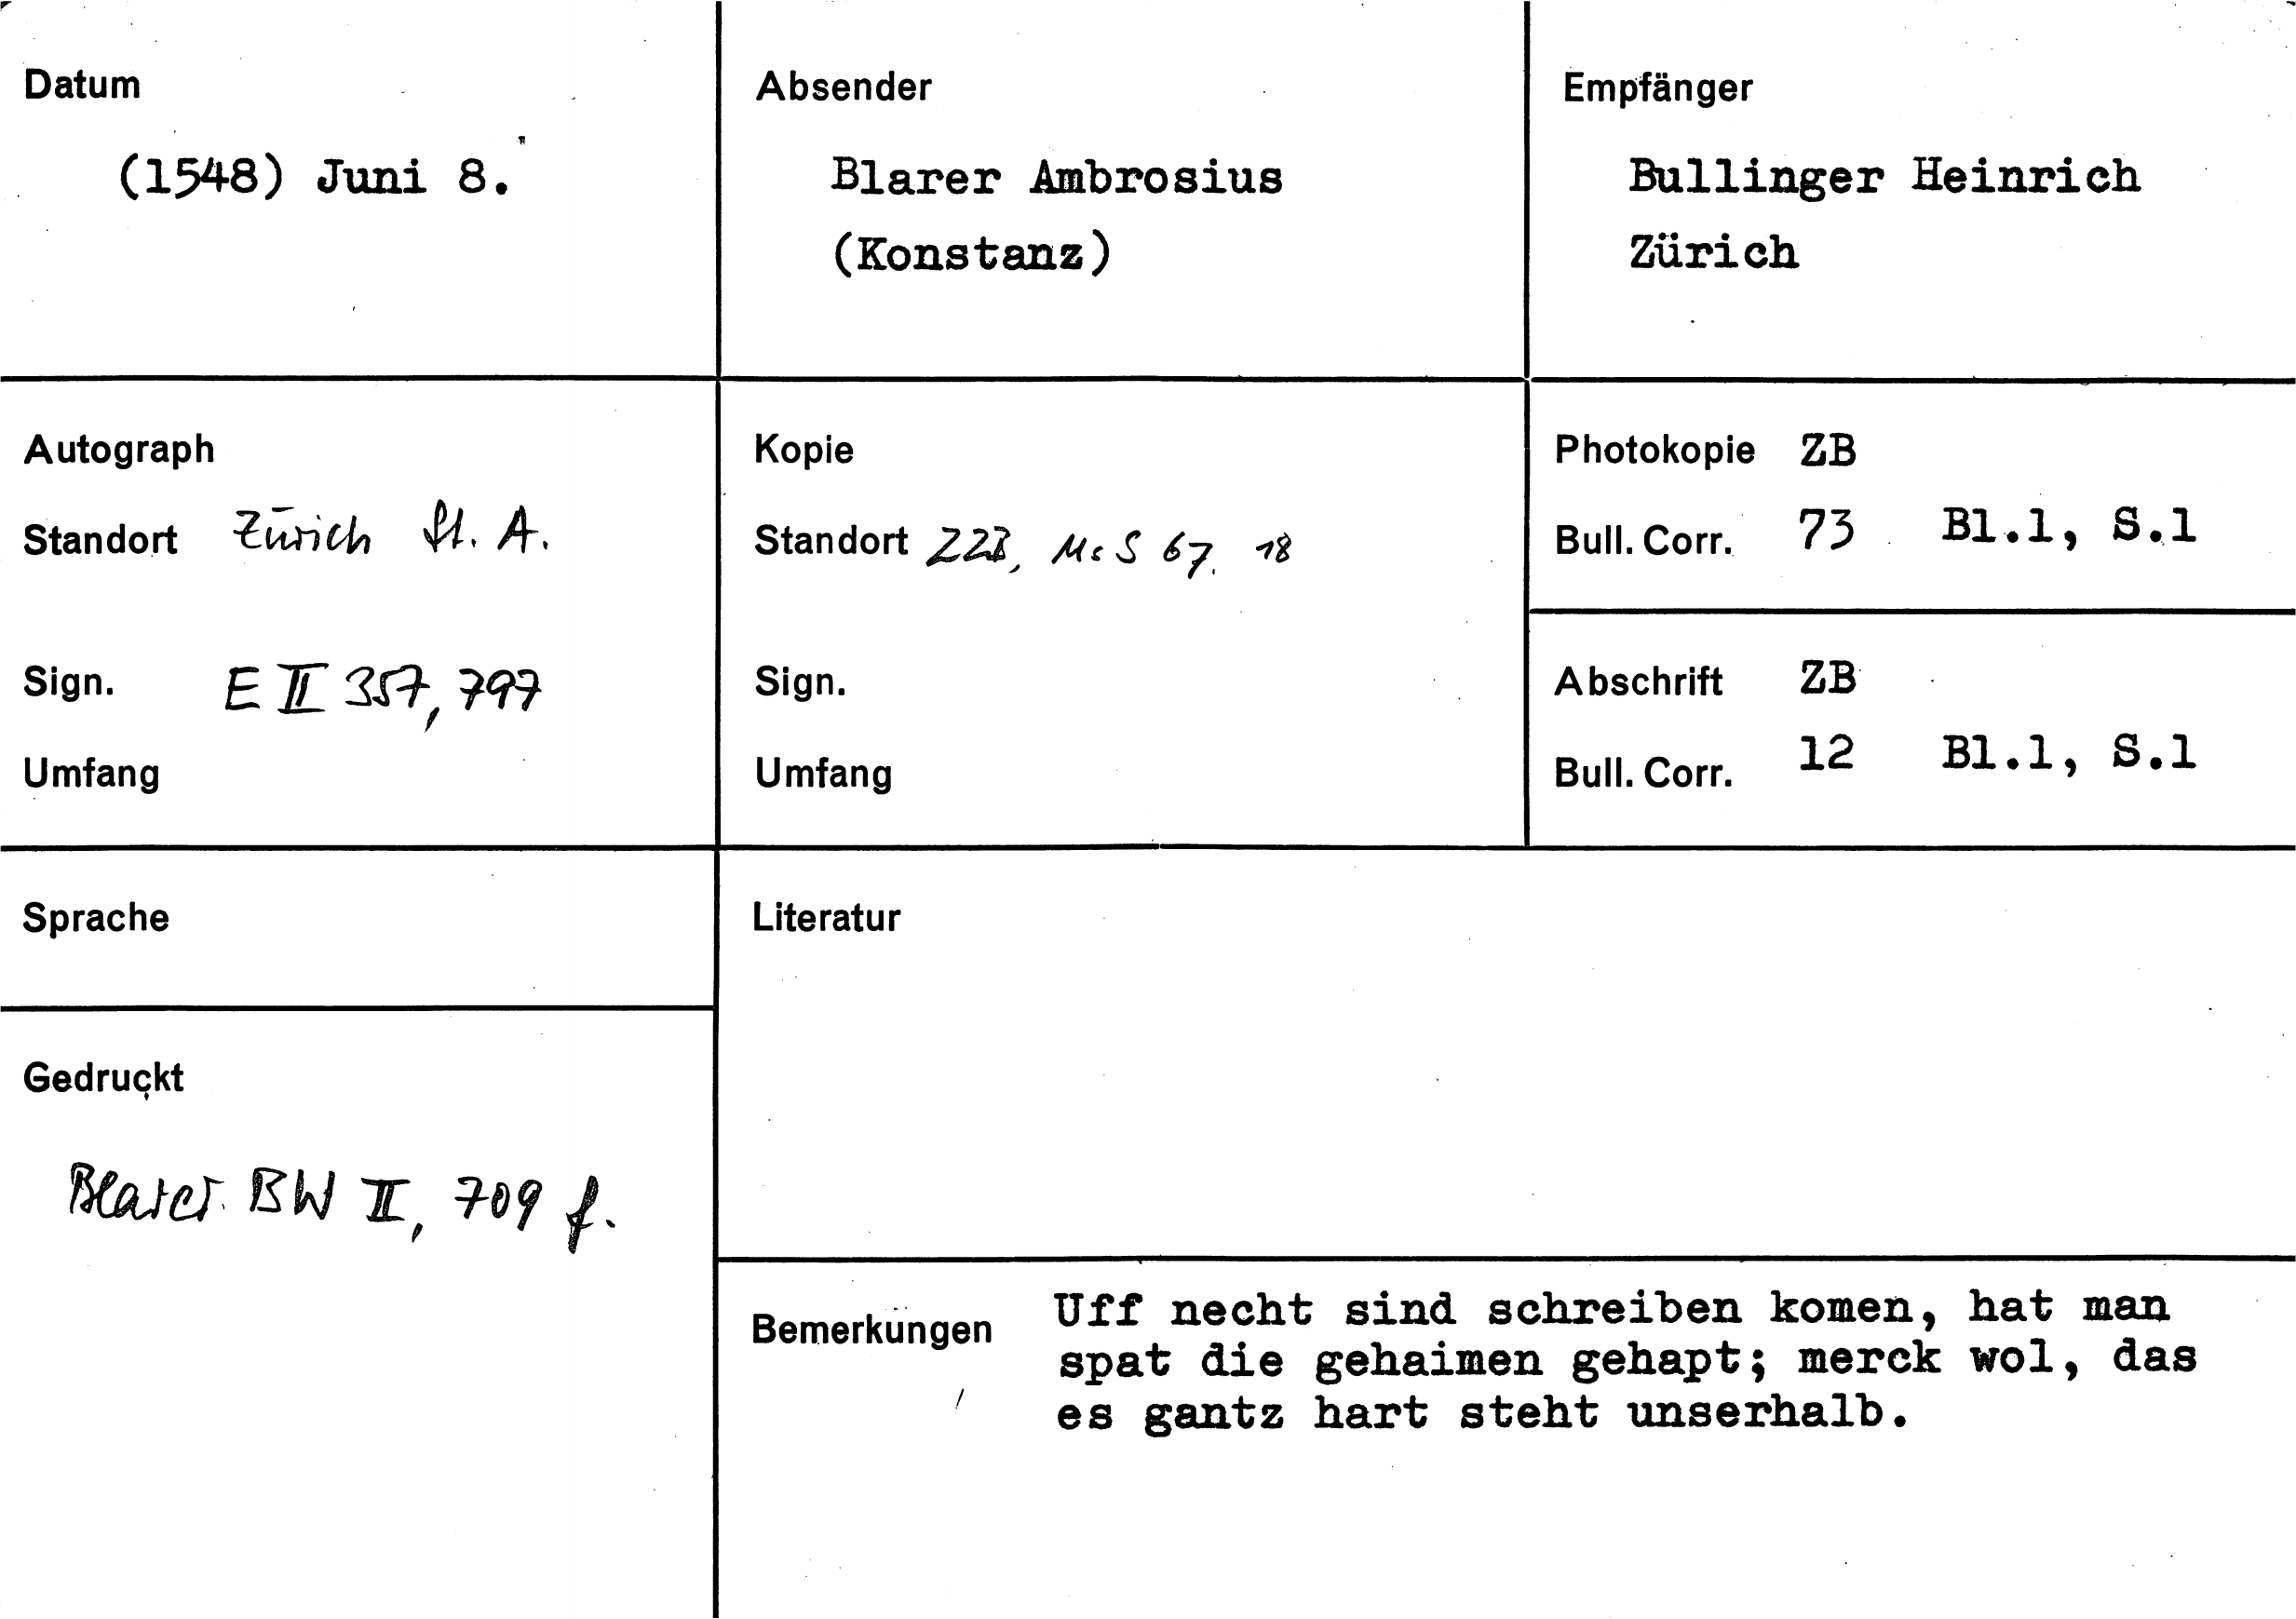 Datum
(1548) Juni 8.
Absender
Blarer Ambrosius
(Konstanz)
Empfänger
Bullinger Heinrich
Zürich
Autograph
Standort Zürich St. A.
Sign. E II 357, 797
Umfang
Kopie
Standort ZZB, Ms S 67. 18
Sign.
Umfang
Photokopie ZB
Bull. Corr. 73 Bl.1, S.1
Abschrift ZB
Bull. Corr. 12 Bl.1, S.1
Sprache
Literatur
Gedruckt
Blarer BW II, 709 f.
Bemerkungen Uff necht sind schreiben komen, hat man
spat die gehaimen gehapt; merck wol, das
es gantz hart steht unserhalb.